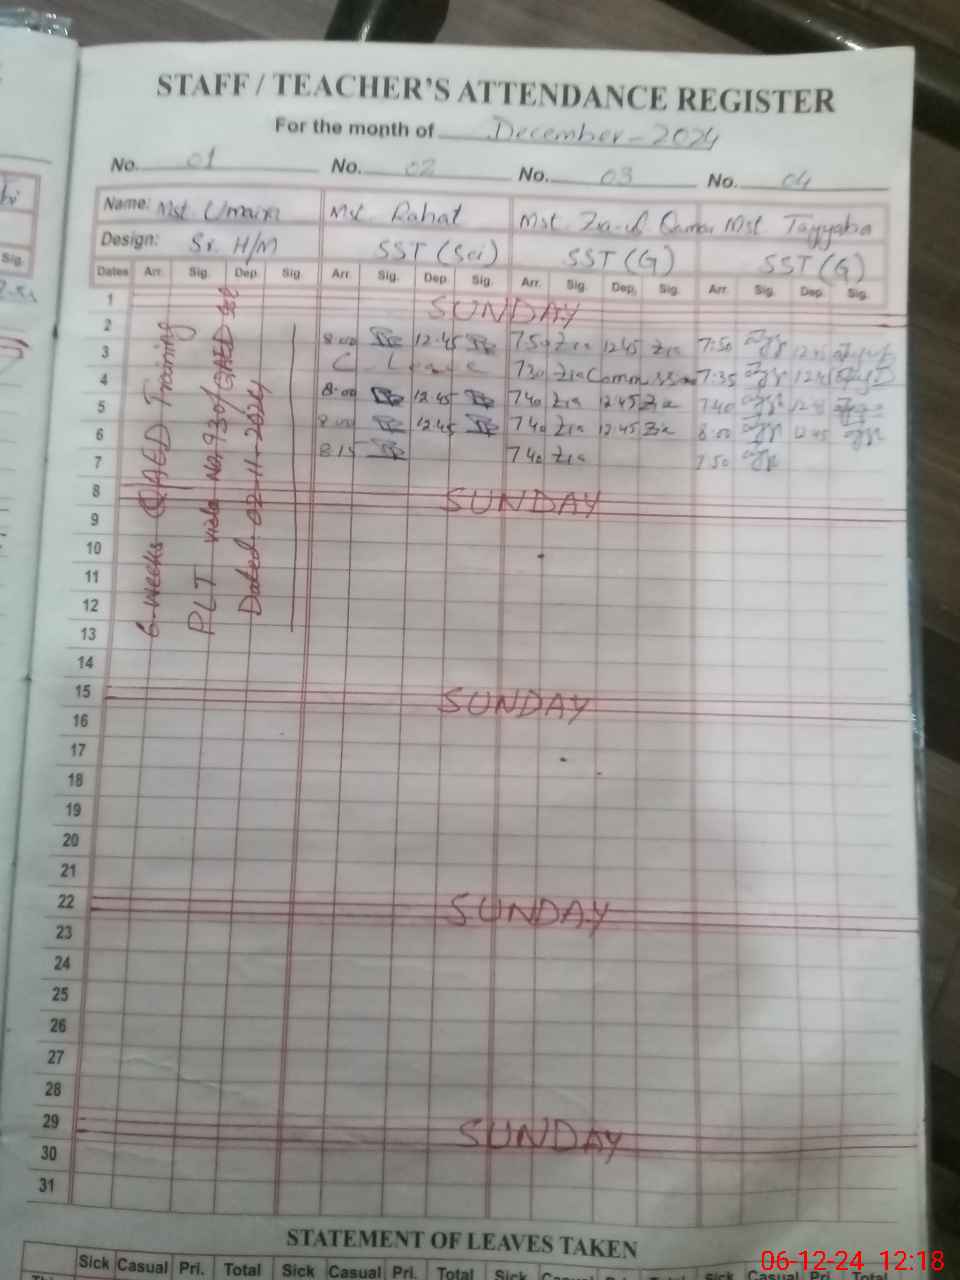 STAFF / TEACHER'S ATTENDANCE REGISTER
For the month of December-2024
No. 01 No. 02 No. 03 No. 04
Name: Mst. Umaira Mst. Rahat Mst. Zia-ul Qamar Mst. Tayyaba
Design: Sr. H/M SST (Sci) SST (G) SST (G)
Dates Arr. Sig. Dep. Sig. Arr. Sig. Dep. Sig. Arr. Sig. Dep. Sig. Arr. Sig. Dep. Sig.
1 SUNDAY
2 8:00 12:45 7:50 Zia 12:45 Zia 7:50 12:45
3 C Leave 7:30 Zia 7:35 12:45
4 8:00 12:45 7:40 Zia 12:45 Zia 7:40 12:45
5 8:00 12:45 7:40 Zia 12:45 Zia 8:00 12:45
6 8:15 7:40 Zia 7:50
7
8 SUNDAY
9
10
11
12
13
14
15 SUNDAY
16
17
18
19
20
21
22 SUNDAY
23
24
25
26
27
28
29 SUNDAY
30
31
6-weeks QAED Training
PLT vide No. 930/QAED
Dated. 02-11-2024
STATEMENT OF LEAVES TAKEN
Sick Casual Pri. Total Sick Casual Pri. Total Sick Casual Pri. Total Sick Casual Pri. Total
06-12-24 12:18